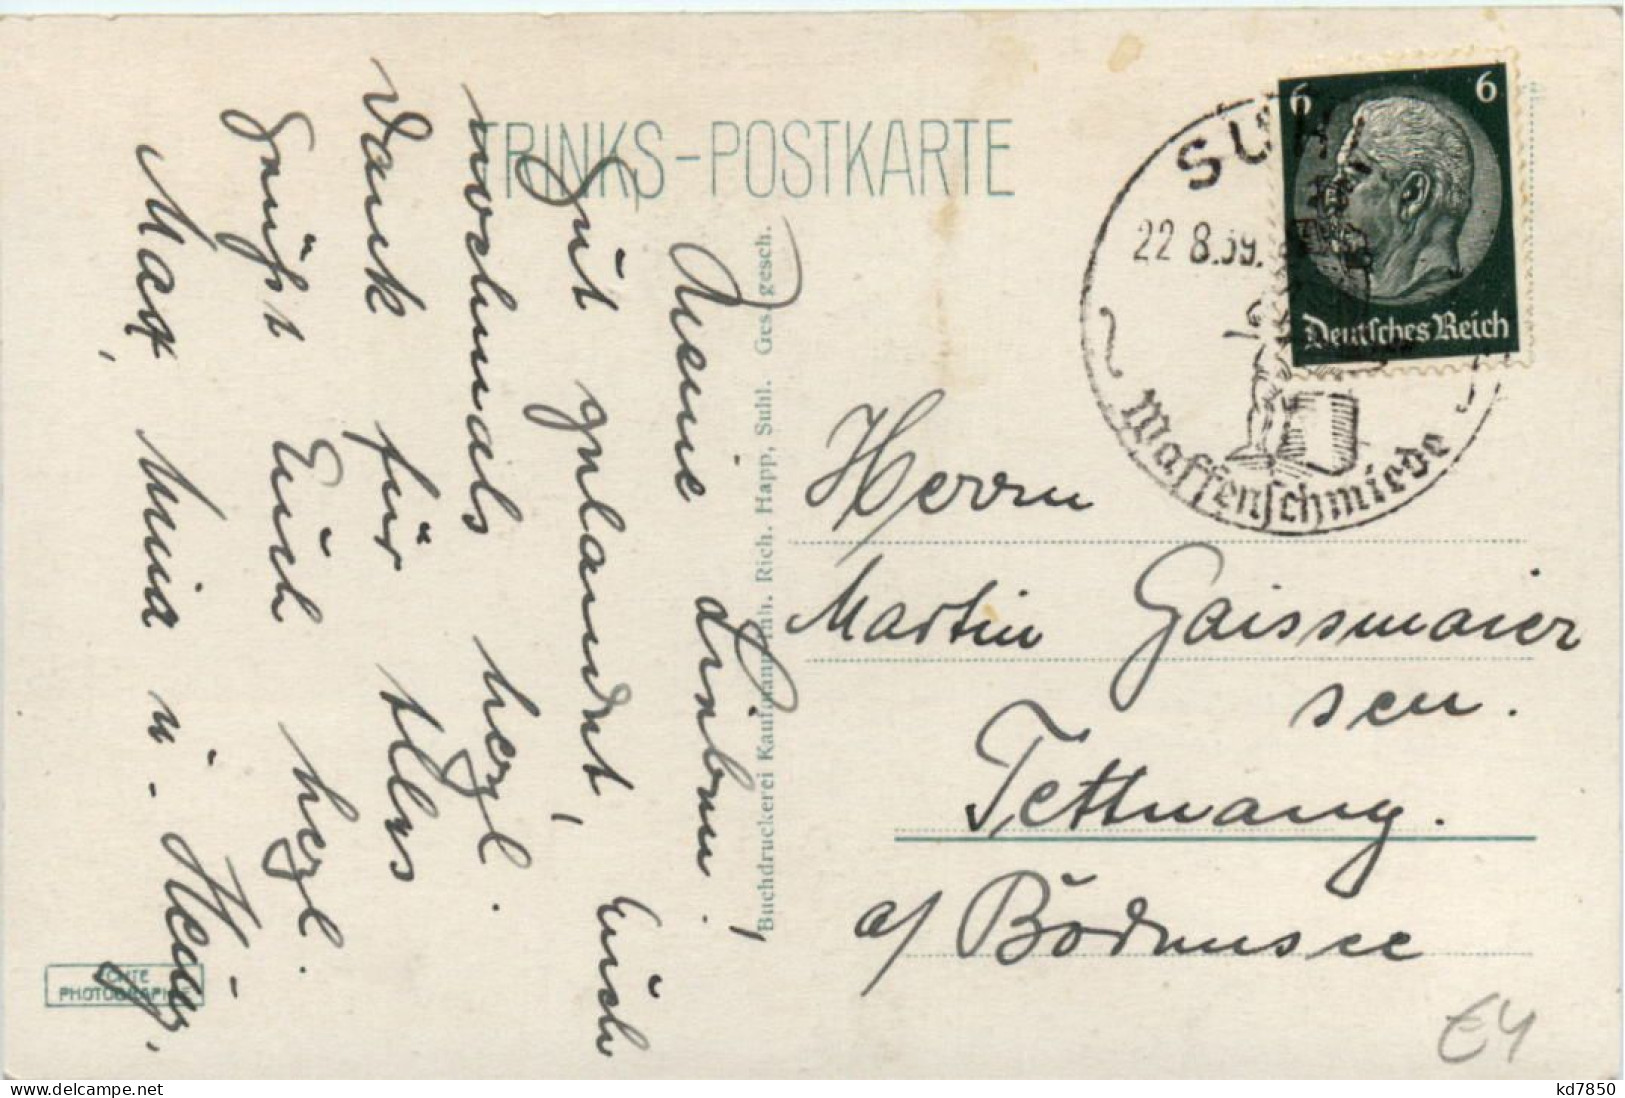 TRINKS-POSTKARTE
Meine Lieben!
Gut gelandet, Euch
nochmals herzl.
Dank für Alles
Grüßt Euch herzl.
Max, Mina u.
Buchdruckerei Kaufmann Inh. Rich. Happ, Suhl. Ges. gesch.
ECHTE
PHOTOGRAPHIE
SUHL
22 8.39.
Waffenschmiede
6 6
Deutsches Reich
Herrn
Martin Gaissmaier
sen.
Tettnang.
a/ Bodensee
€4
delcampe.net
kd7850